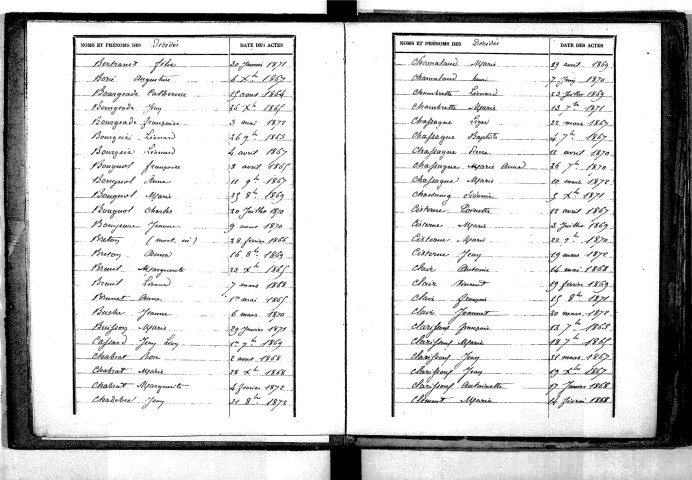 NOMS ET PRÉNOMS DES Décédés DATE DES ACTES
Bertranet 20 Janvier 1871
Borie Augustine 6 Xbre 1867
Bourgeade Catherine 15 aout 1864
Bourgeade Jean 26 Xbre 1865
Bourgeade françoise 3 mai 1872
Bourgeois Léonard 26 9bre 1863
Bourgeois Léonard 4 avril 1867
Bougnol françoise 3 avril 1865
Bougnol Anne 11 9bre 1867
Bougnol Marie 25 8bre 1869
Bougnol Charles 20 Juillet 1870
Jeanne 9 aout 1870
Breton (mort né) 28 février 1866
Breton Anna 16 8bre 1869
Breuil Marguerite 23 Xbre 1865
Breuil Léonard 7 mars 1868
Brunet Anne 1er mai 1865
Buche Jeanne 6 mars 1870
Buisson Marie 29 Janvier 1871
Jean 1er 7bre 1869
Chabrat 2 aout 1868
Chabrat Marie 28 Xbre 1868
Chabrat Marguerite 4 février 1872
Jean 31 8bre 1872
NOMS ET PRÉNOMS DES Décédés DATE DES ACTES
Chamalaud Marie 29 avril 1869
Chamalaud 7 Juin 1870
Chambrette Léonard 23 Juillet 1869
Chambrette Marie 13 7bre 1871
Chassagne Léger 22 mars 1867
Chassagne Baptiste 4 7bre 1867
Chassagne Pierre 12 avril 1870
Chassagne Marie Anne 26 7bre 1870
Chassagne Marie 10 mars 1872
Chastaing 5 Xbre 1871
Cisterne Toinette 12 avril 1867
Cisterne Marie 3 Juillet 1869
Cisterne Marie 22 9bre 1870
Cisterne Jean 19 mars 1872
Clair Antoine 14 mai 1868
Clair Vincent 19 février 1869
Clair François 15 8bre 1871
Clair Jeannet 30 mars 1872
Clarissou françoise 13 7bre 1863
Clarissou Marie 18 7bre 1865
Clarissou Jean 31 mars 1867
Clarissou Jean 19 Xbre 1867
Clarissou Antoinette 17 Janvier 1868
Clément Marie 14 février 1868